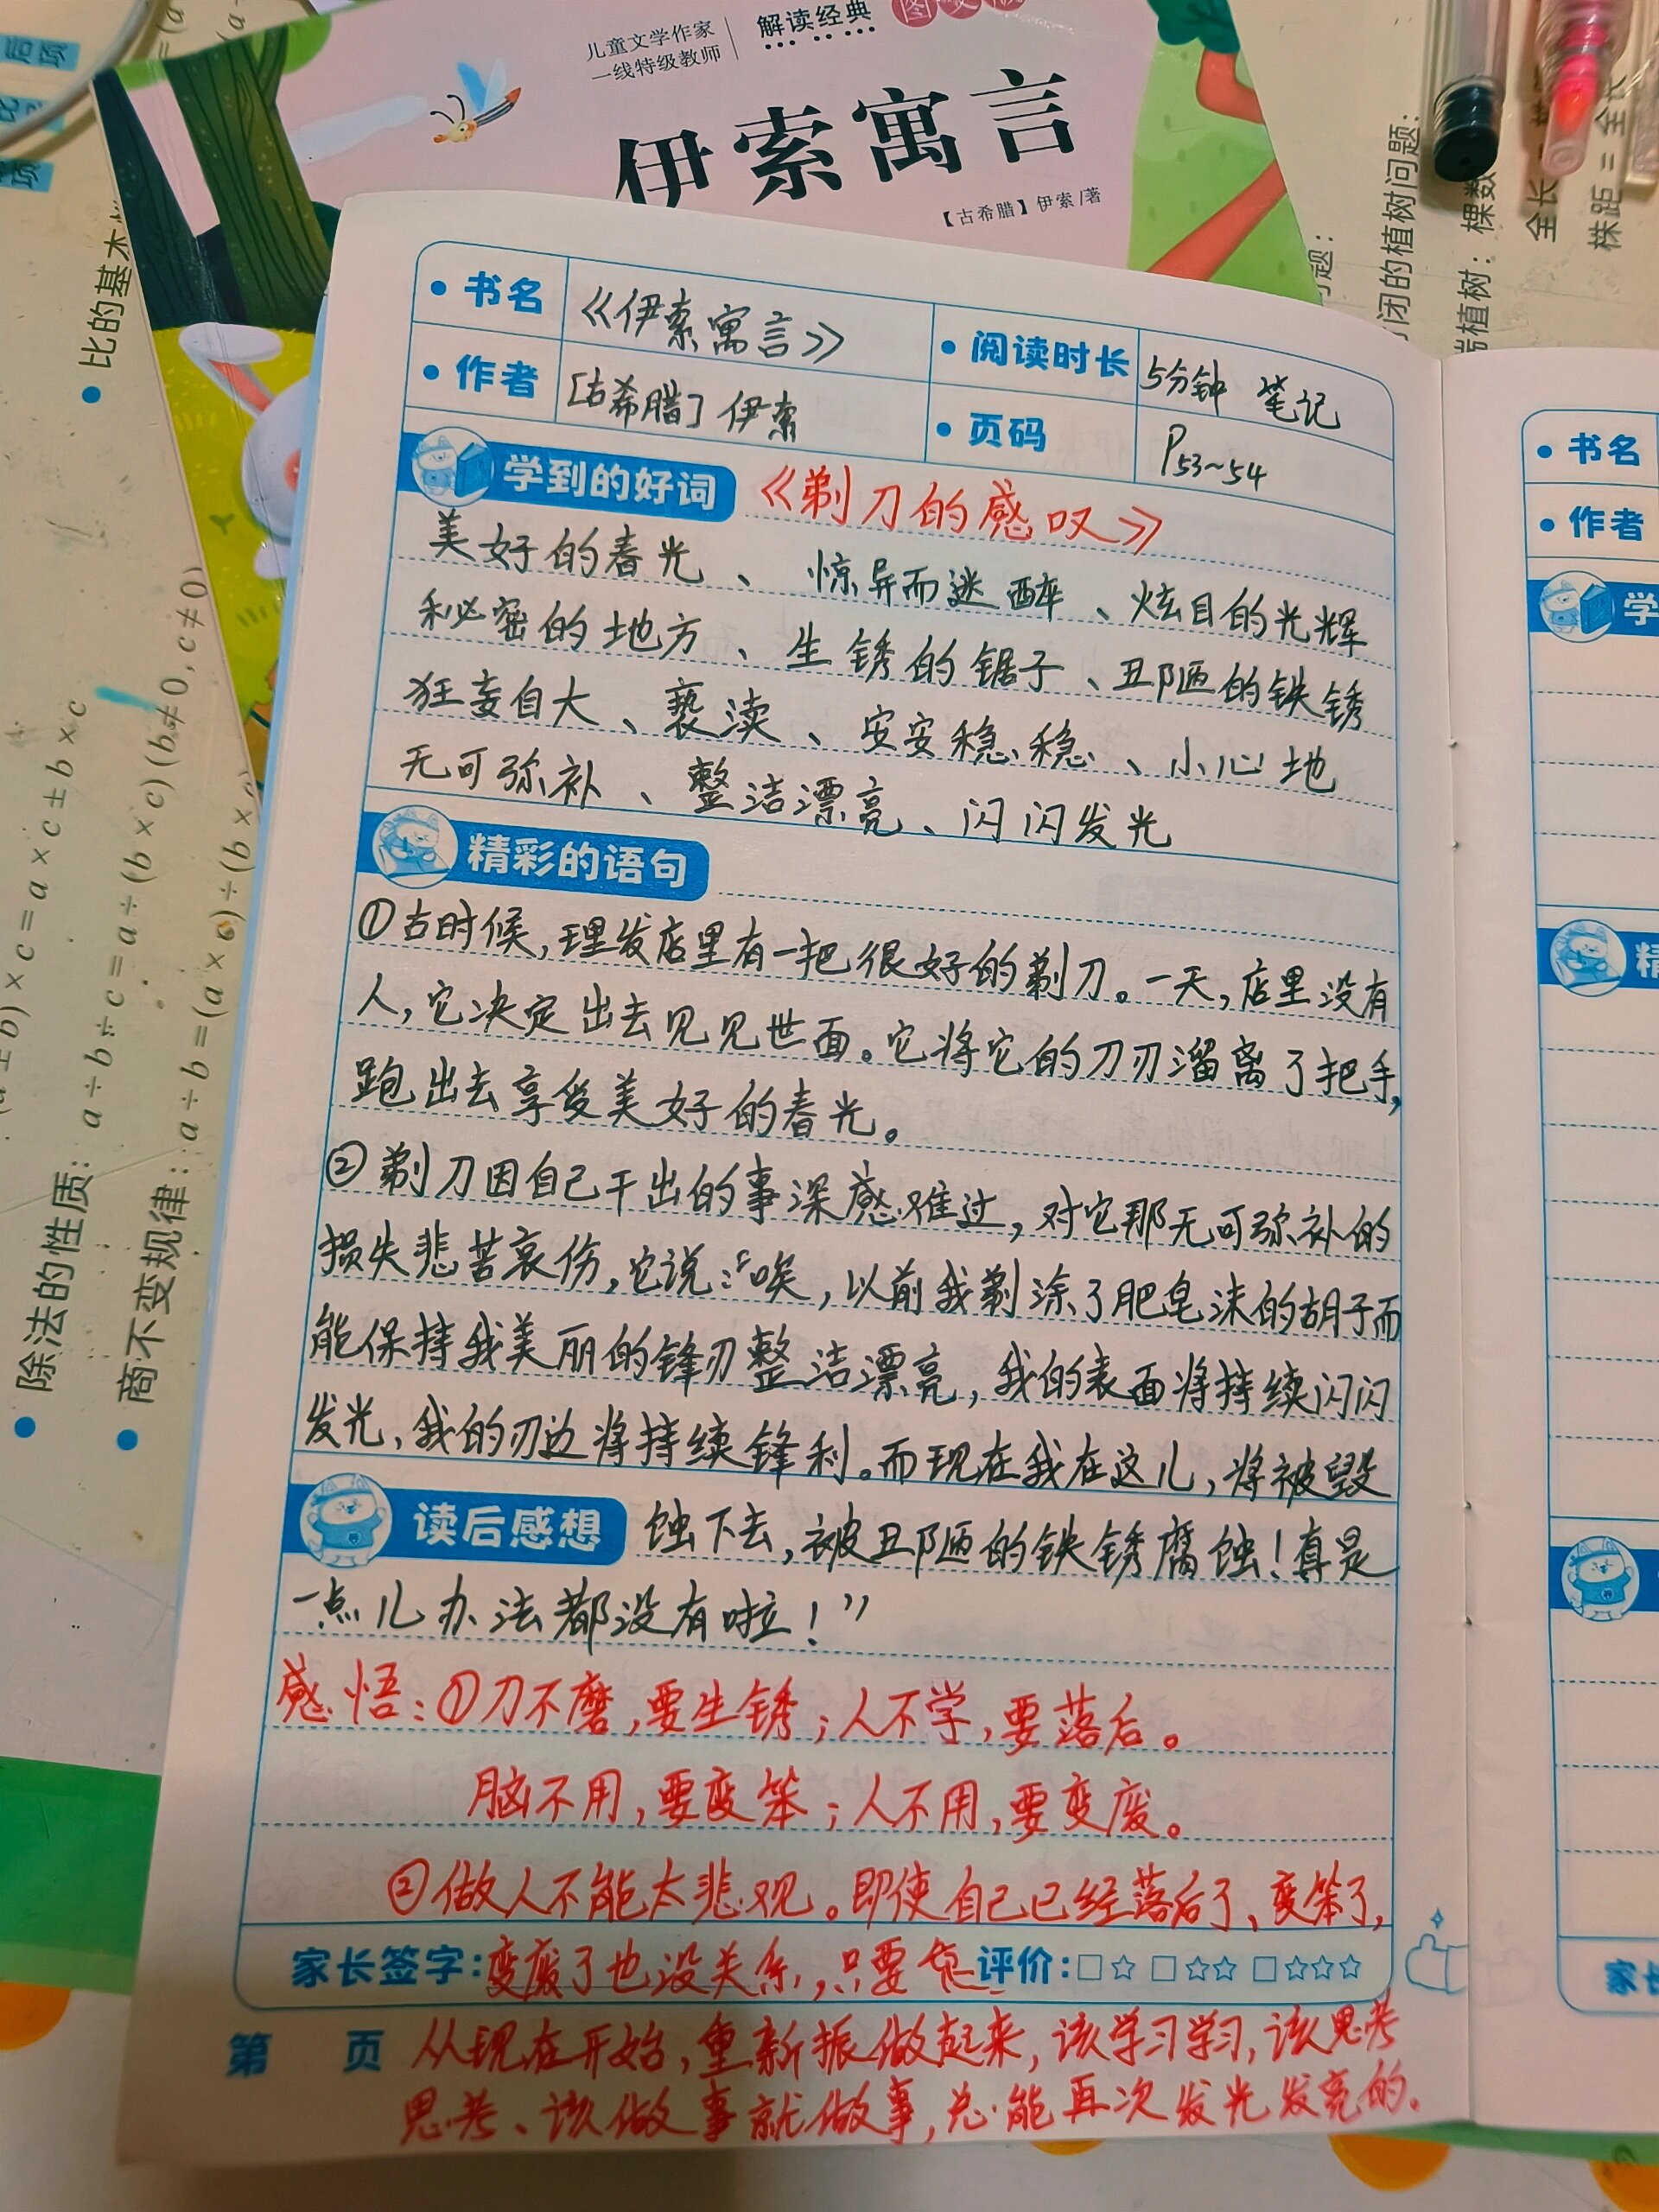 儿童文学作家
一线特级教师
解读经典
伊索寓言
【古希腊】伊索/著
后项
比的基本
除法的性质: a÷b÷c=a÷(b×c)(b≠0,c≠0)
商不变规律: a÷b=(a×c)÷(b×
b)×c=a×c±b×c
闭的植树问题:
植树: 棵数
全长
株距=全长
书名 《伊索寓言》
阅读时长 5分钟 笔记
作者 [古希腊] 伊索
页码 P53~54
学到的好词 《剃刀的感叹》
美好的春光、惊异而迷醉、炫目的光辉
秘密的地方、生锈的锯子、丑陋的铁锈
狂妄自大、亵渎、安安稳稳、小心地
无可弥补、整洁漂亮、闪闪发光
精彩的语句
①古时候,理发店里有一把很好的剃刀。一天,店里没有
人,它决定出去见见世面。它将它的刀刃溜离了把手,
跑出去享受美好的春光。
②剃刀因自己干出的事深感难过,对它那无可弥补的
损失悲苦哀伤,它说:“唉,以前我剃涂了肥皂沫的胡子而
能保持我美丽的锋刃整洁漂亮,我的表面将持续闪闪
发光,我的刃边将持续锋利。而现在我在这儿,将被毁
读后感想 蚀下去,被丑陋的铁锈腐蚀!真是
一点儿办法都没有啦!”
感悟:①刀不磨,要生锈;人不学,要落后。
脑不用,要变笨;人不用,要变废。
②做人不能太悲观。即使自己已经落后了、变笨了,
家长签字: 变废了也没关系,只要您 评价:□☆ □☆☆ □☆☆☆
第 页 从现在开始,重新振做起来,该学习学习,该思考
思考、该做事就做事,总能再次发光发亮的。
书名
作者
学
精
家长